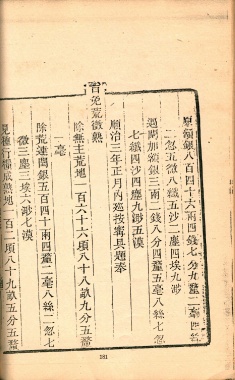 原額銀八百四十六兩四錢七分九釐四絲
二忽五微八纖五沙二塵四埃九渺
遇閏加額銀三兩二錢八分四釐五毫八絲七忽
七纖四沙四塵九渺五漠
順治三年正月內巡按寗具題奉
旨免荒徵熟
除無主荒地一百六十六頃八十八畝九分五釐
一毫
除荒連閏銀五百四十四兩四釐二毫八絲二忽
微三塵三埃六渺七漠
見種行糧成熟地一百二項八十九畝九分五釐
181